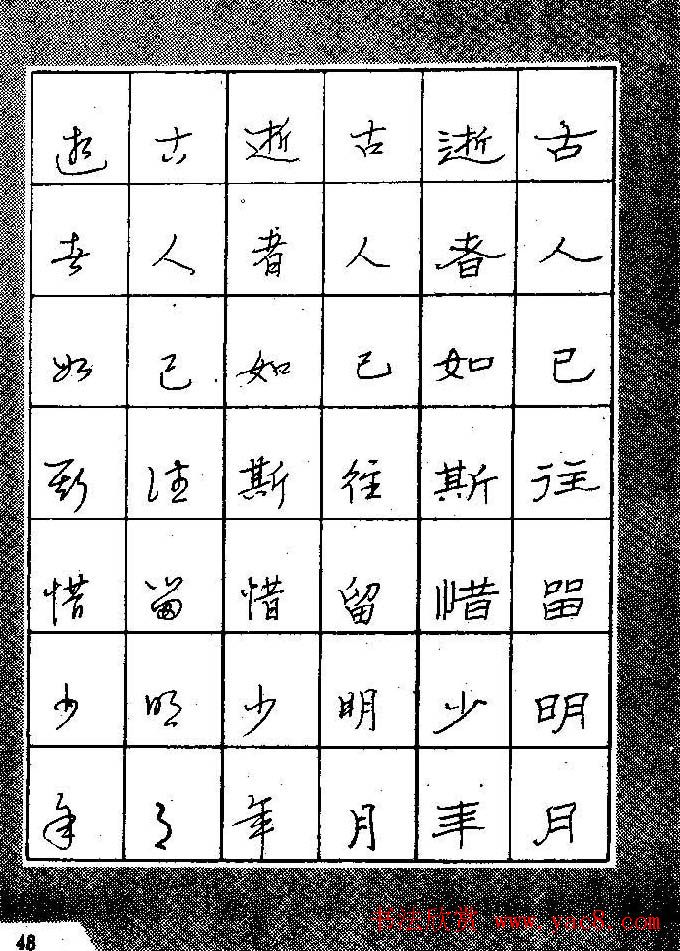 古人已往留明月
逝者如斯惜少年
古人已往留明月
逝者如斯惜少年
古人已往留明月
逝者如斯惜少年
48
书法欣赏 www.yac8.com